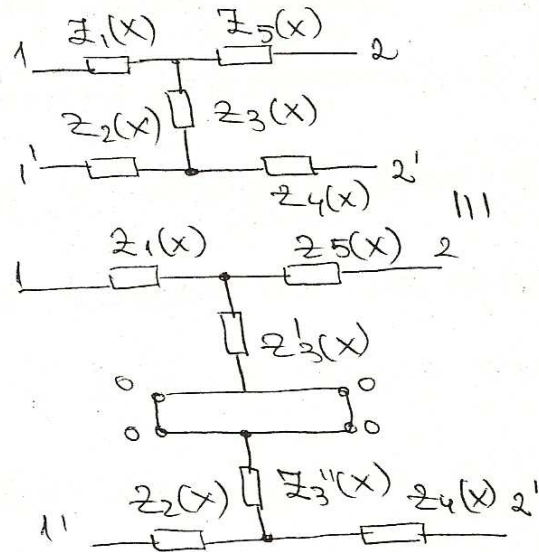 Z1(x) Z5(x)
1 2
Z2(x) Z3(x)
1' 2'
Z4(x)
III
Z1(x) Z5(x) 2
1
Z'3(x)
0 0
0 0
Z2(x) Z3''(x) Z4(x) 2'
1'